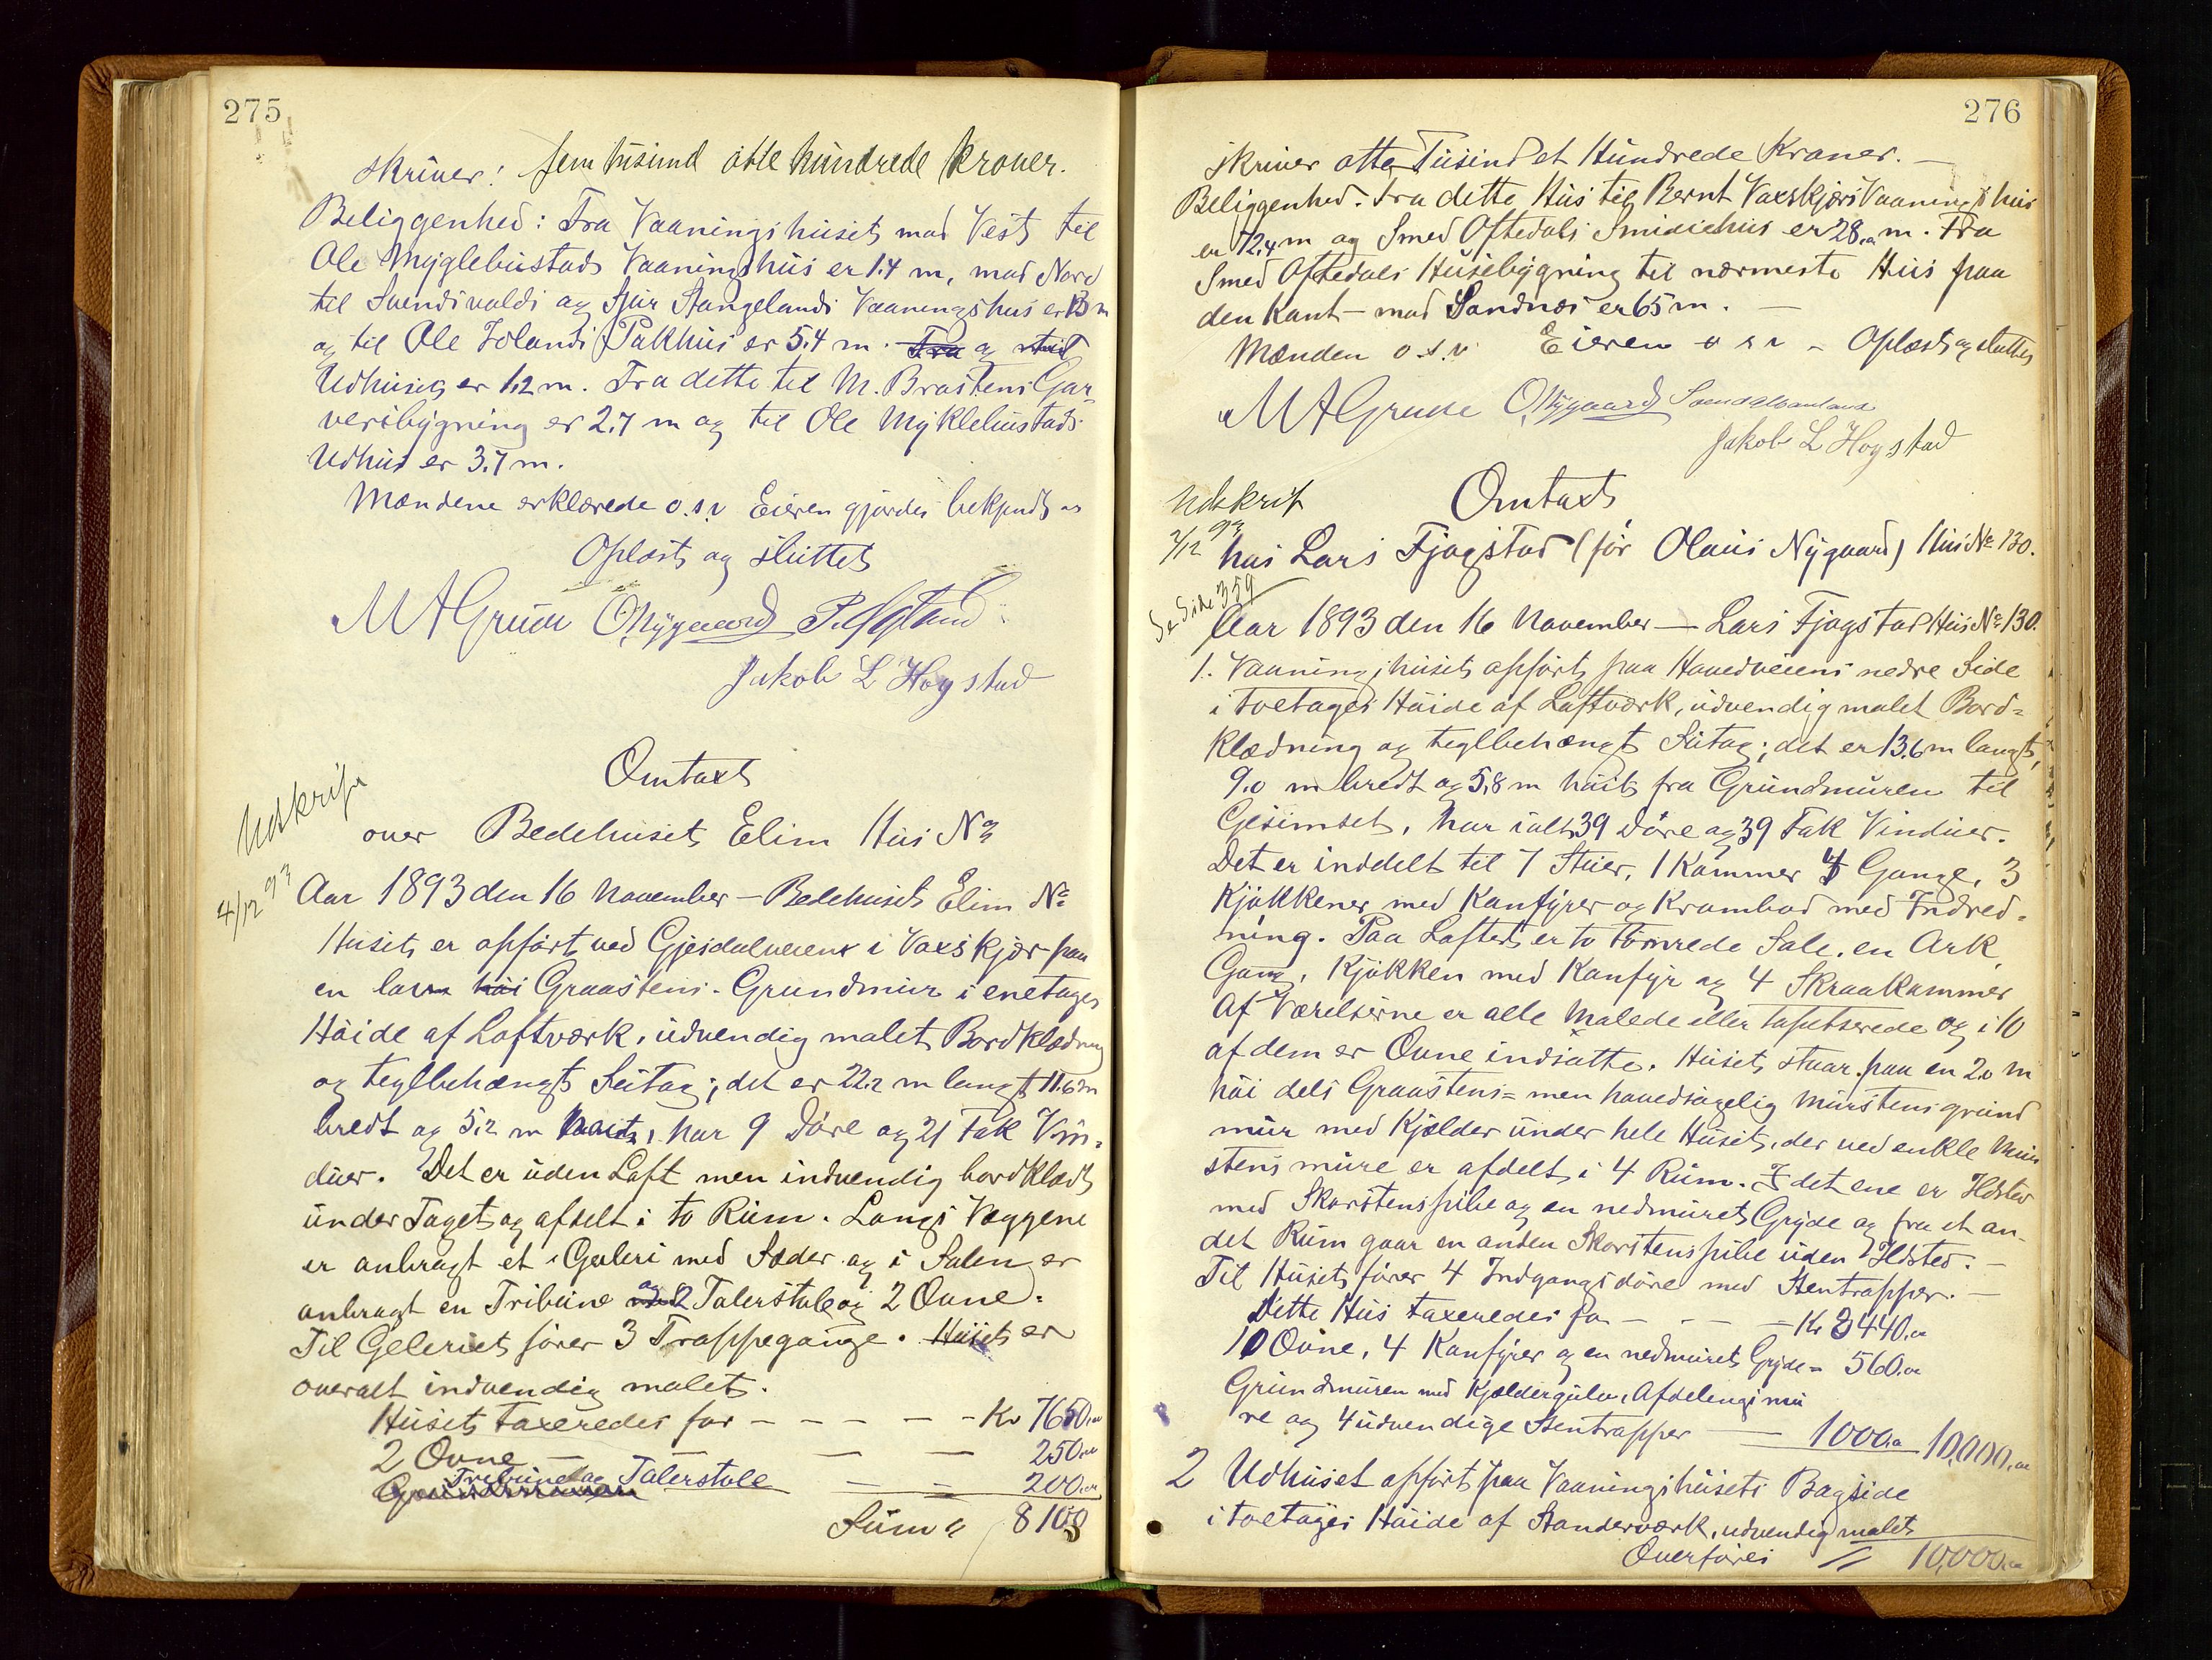 275
skriver: fem tusind otte hundrede kroner.
Beliggenhed: Fra Vaaningshuset mod Vest til
Ole Myglebustads Vaaningshus er 1.4 m, mod Nord
til Svendsvolds og Sjur Stangelands Vaaningshus er 13 m
og til Ole Jolands Pakhus er 5.4 m. Fra og
Udhuset er 1.2 m. Fra dette til M. Brastens Gar-
veribygning er 2.7 m og til Ole Myklebustads
Udhus er 3.7 m.
Mændene erklærede o.s.v Eieren gjordes bekjendt
Oplæst og sluttet
M A Grude O Nygaard
Jakob L Hogstad
Omtaxt
Udskrift
4/12 93
over Bedehuset Elim Hus No
Aar 1893 den 16 November - Bedehuset Elim No
Huset er opført ved Gjesdalveien i Vaxskjær paa
en lav høi Graastens-Grundmur i enetages
Høide af Loftværk, udvendig malet Bordklædning
og teglbehængt Sutag; det er 22.2 m langt 11.6 m
bredt og 5.2 m høit, har 9 Døre og 21 Fak Vin-
duer. Det er uden Loft men indvendig bordklædt
under Taget og afdelt i to Rum. Langs Væggene
er anbragt et Galeri med Sæder og i Salen er
anbragt en Tribune og 2 Talerstole og 2 Ovne.
Til Geleriet fører 3 Trappegange. Huset er
overalt indvendig malet.
Huset taxeredes for - - - - - Kr 7650.00
2 Ovne - - - 250.00
Grundmuren Tribune og Talerstole = = 200.00
Sum " 8100
276
skriver otte Tusind et Hundrede Kroner. -
Beliggenhed. Fra dette Hus til Bernt Vaxskjærs Vaaningshus
er 72.4 m og Smed Oftedals Smidiehus er 28.0 m. Fra
Smed Oftedals Husebygning til nærmeste Hus paa
den Kant - mod Sandnæs er 65 m. -
Mænden o.s.v Eieren o s v - Oplæst og sluttet
M A Grude O. Nygaard
Jakob L Hogstad
Omtaxt
Udskrift
2/12 93
hos Lars Fjogstad (før Olaus Nygaard) Hus No 130.
Se Side 359
Aar 1893 den 16 November - Lars Fjogstad Hus No 130.
1. Vaaningshuset opført paa Hovedveiens nedre Side
i toetages Høide af Loftværk, udvendig malet Bord-
klædning og teglbehængt Sutag; det er 13.6 m langt,
9.0 m bredt og 5.8 m høit fra Grundmuren til
Gesimset, har ialt 39 Døre og 39 Fak Vinduer.
Det er inddelt til 7 Stuer, 1 Kammer 4 Gange, 3
Kjøkkener med Komfyrer og Krambod med Indred-
ning. Paa Loftet er to tømrede Sale, en Ark,
Gang, Kjøkken med Komfyr og 4 Skraakammer
Af Værelserne er alle Malede eller tapetserede og i 10
af dem er Ovne indsatte. Huset staar paa en 2.0 m
høi dels Graastens= men hovedsagelig Murstensgrund
mur med Kjelder under hele Huset, der ved enkle Mur
stens mure er afdelt i 4 Rum. I det ene er Ildsted
med Skorstenspibe og en nedmuret Gryde og fra et an-
det Rum gaar en anden Skorstenspibe uden Ildsted. -
Til Huset fører 4 Indgangsdøre med Stentrapper. -
Dette Hus taxeredes for - - - - Kr 8440.00
10 Ovne, 4 Komfyrer og en nedmuret Gryde = 560.00
Grundmuren med Kjeldergulv, Afdelingsmu
re og 4 udvendige Stentrapper - 1000.00 10,000.00
2 Udhuset opført paa Vaaningshusets Bagside
i toetages Høide af Standerværk, udvendig malet
Overføres = 10,000.00